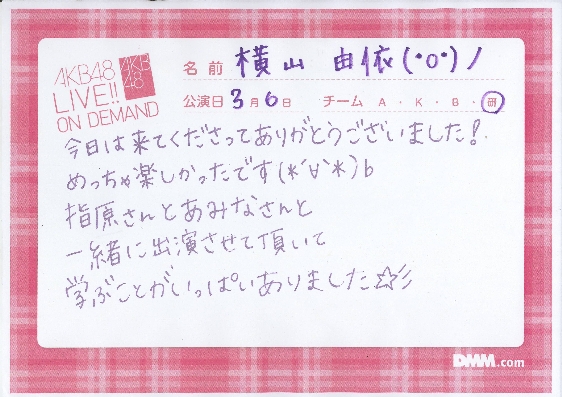 AKB48
LIVE!!
ON DEMAND
AKB
48
名前 横山 由依(・o・)ノ
公演日 3月6日 チーム A・K・B・研
今日は来てくださってありがとうございました!
めっちゃ楽しかったです(*´∀`*)b
指原さんとあみなさんと
一緒に出演させて頂いて
学ぶことがいっぱいありました☆彡
DMM.com